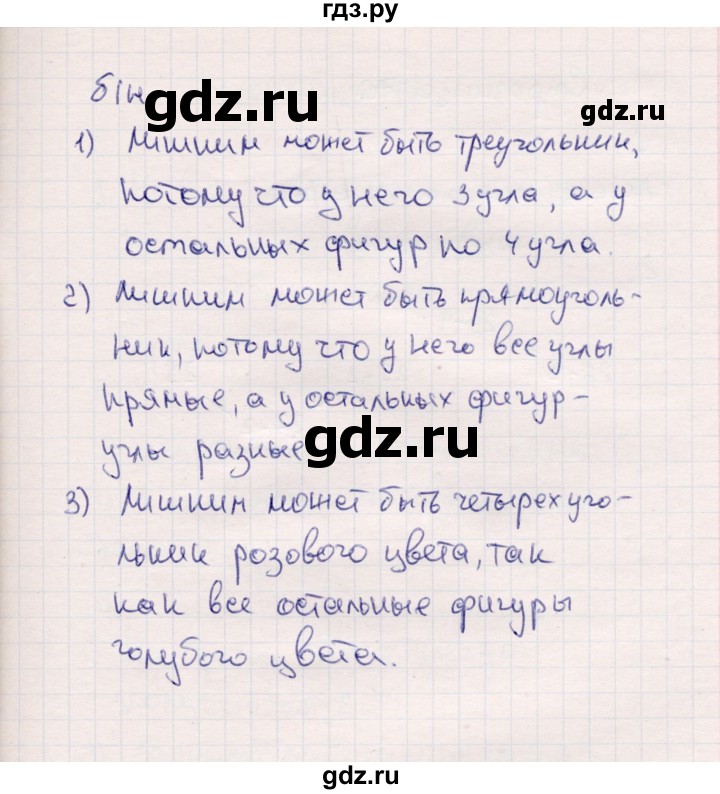 гдз.ру
gdz.ru
gdz.ru
1) Лишним может быть треугольник,
потому что у него 3 угла, а у
остальных фигур по 4 угла.
2) Лишним может быть прямоуголь-
ник, потому что у него все углы
прямые, а у остальных фигур -
углы разные
gdz.ru
3) Лишним может быть четырехуго-
льник розового цвета, так
как все остальные фигуры
голубого цвета.
gdz.ru